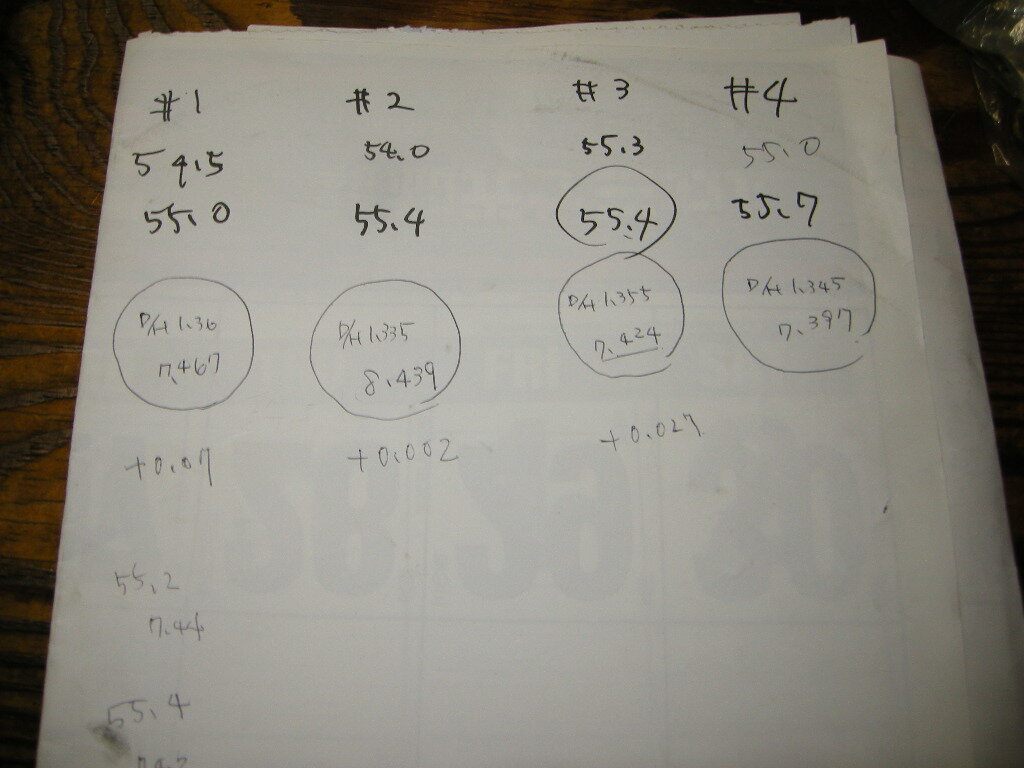 #1 #2 #3 #4
54.5 54.0 55.3 55.0
55.0 55.4 55.4 55.7
D/H 1.36 D/H 1.335 D/H 1.355 D/H 1.345
7.467 8.439 7.424 7.397
+0.07 +0.002 +0.027
55.2
7.44
55.4